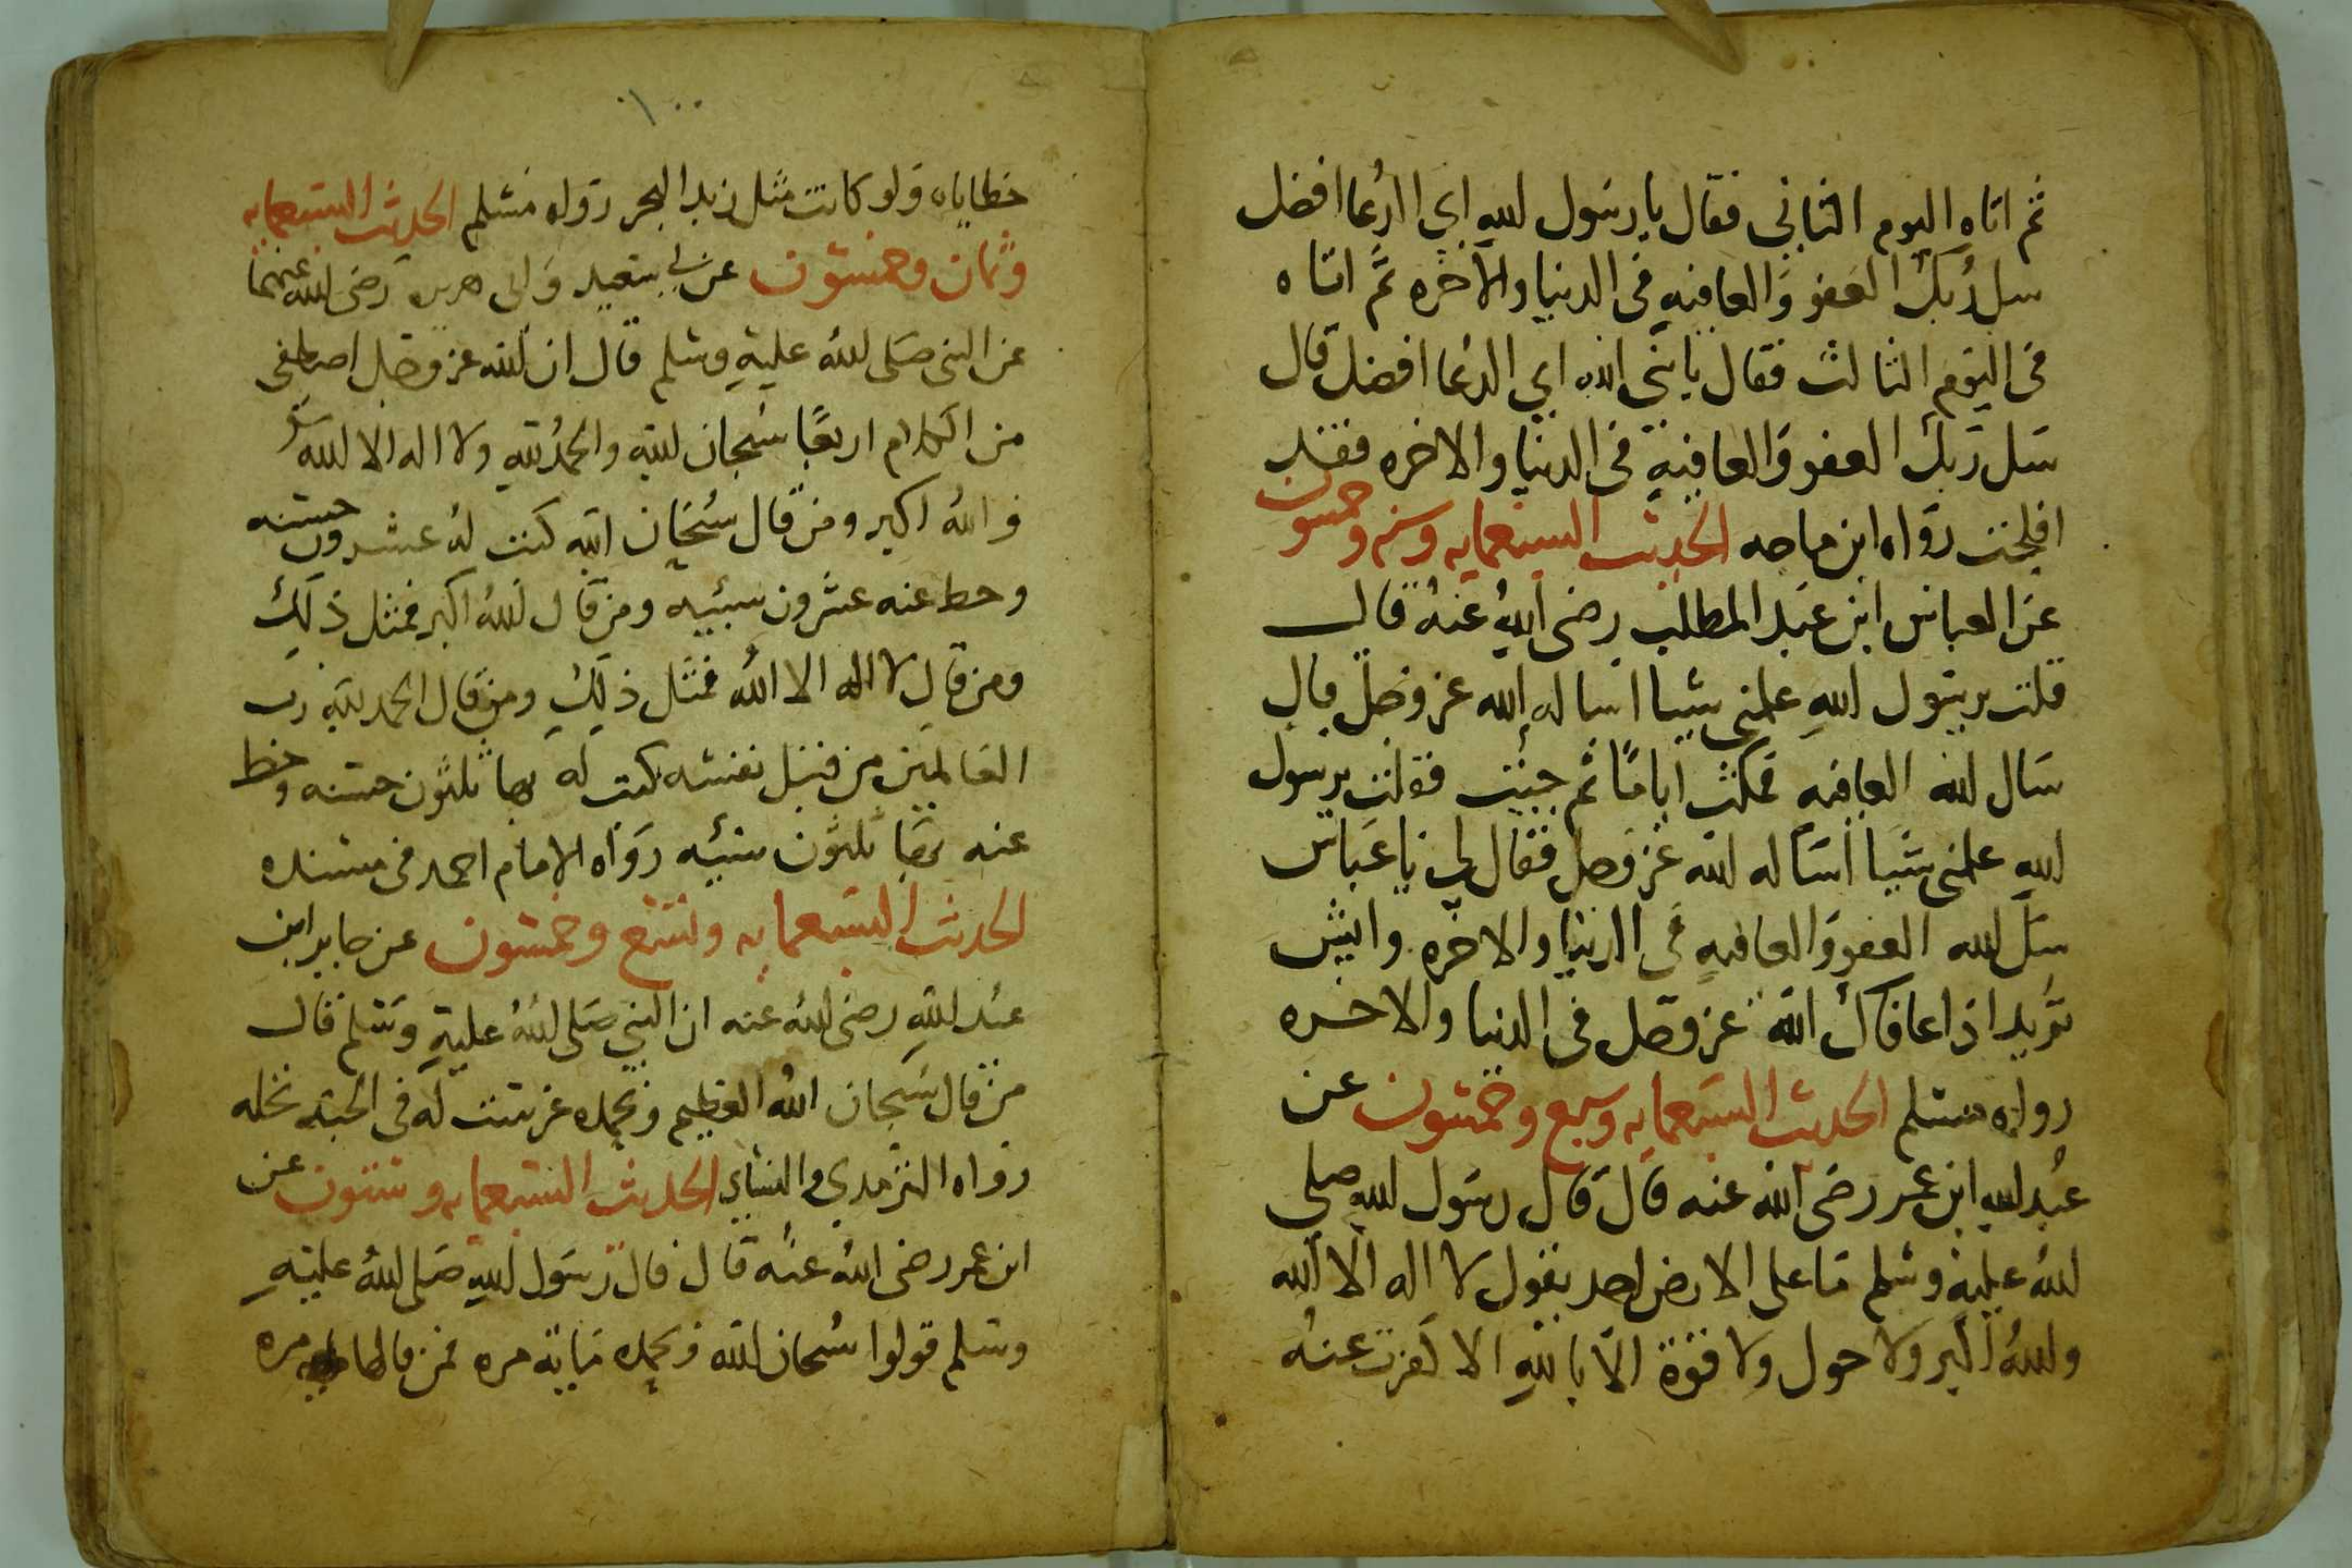 ثم اتاه اليوم الثاني فقال يا رسول الله اي الدعا افضل
سل ربك العفو والعافيه في الدنيا والاخره ثم اتاه
في اليوم الثالث فقال يا نبي الله اي الدعا افضل قال
سل ربك العفو والعافيه في الدنيا والاخره فقد
افلحت رواه ابن ماجه الحديث السبعمايه وسته وخمسون
عن العباس ابن عبد المطلب رضي الله عنه قال
قلت يرسول الله علمني شيا اساله الله عز وجل قال
سال الله العافيه فمكثت اياما ثم جيت فقلت يرسول
الله علمني شيا اساله الله عز وجل فقال لي يا عباس
سل الله العفو والعافيه في الدنيا والاخره وايش
تريد اذا عافاك الله عز وجل في الدنيا والاخره
رواه مسلم الحديث السبعمايه وسبع وخمسون عن
عبد الله ابن عمر رضي الله عنه قال قال رسول الله صلى
الله عليه وسلم ما على الارض احد يقول لا اله الا الله
والله اكبر ولا حول ولا قوة الا بالله الا كفرت عنه
١٠٠
خطاياه ولو كانت مثل زبد البحر رواه مسلم الحديث السبعمايه
وثمان وخمسون عن ابي سعيد وابي هريره رضي الله عنهما
عن النبي صلى الله عليه وسلم قال ان الله عز وجل اصطفى
من الكلام اربعا سبحان الله والحمد لله ولا اله الا الله
والله اكبر ومن قال سبحان الله كتبت له عشرون حسنه
وحط عنه عشرون سييه ومن قال الله اكبر فمثل ذلك
ومن قال لا اله الا الله فمثل ذلك ومن قال الحمد لله رب
العالمين من قبل نفسه كتب له بها ثلثون حسنه وحط
عنه بها ثلثون سييه رواه الامام احمد في مسنده
الحديث السبعمايه وتسع وخمسون عن جابر ابن
عبد الله رضي الله عنه ان النبي صلى الله عليه وسلم قال
من قال سبحان الله العظيم وبحمده غرست له في الجنه نخله
رواه الترمدي والنساي الحديث السبعمايه وستون عن
ابن عمر رضي الله عنه قال قال رسول الله صلى الله عليه
وسلم قولوا سبحان الله وبحمده مايه مره فمن قالها مره